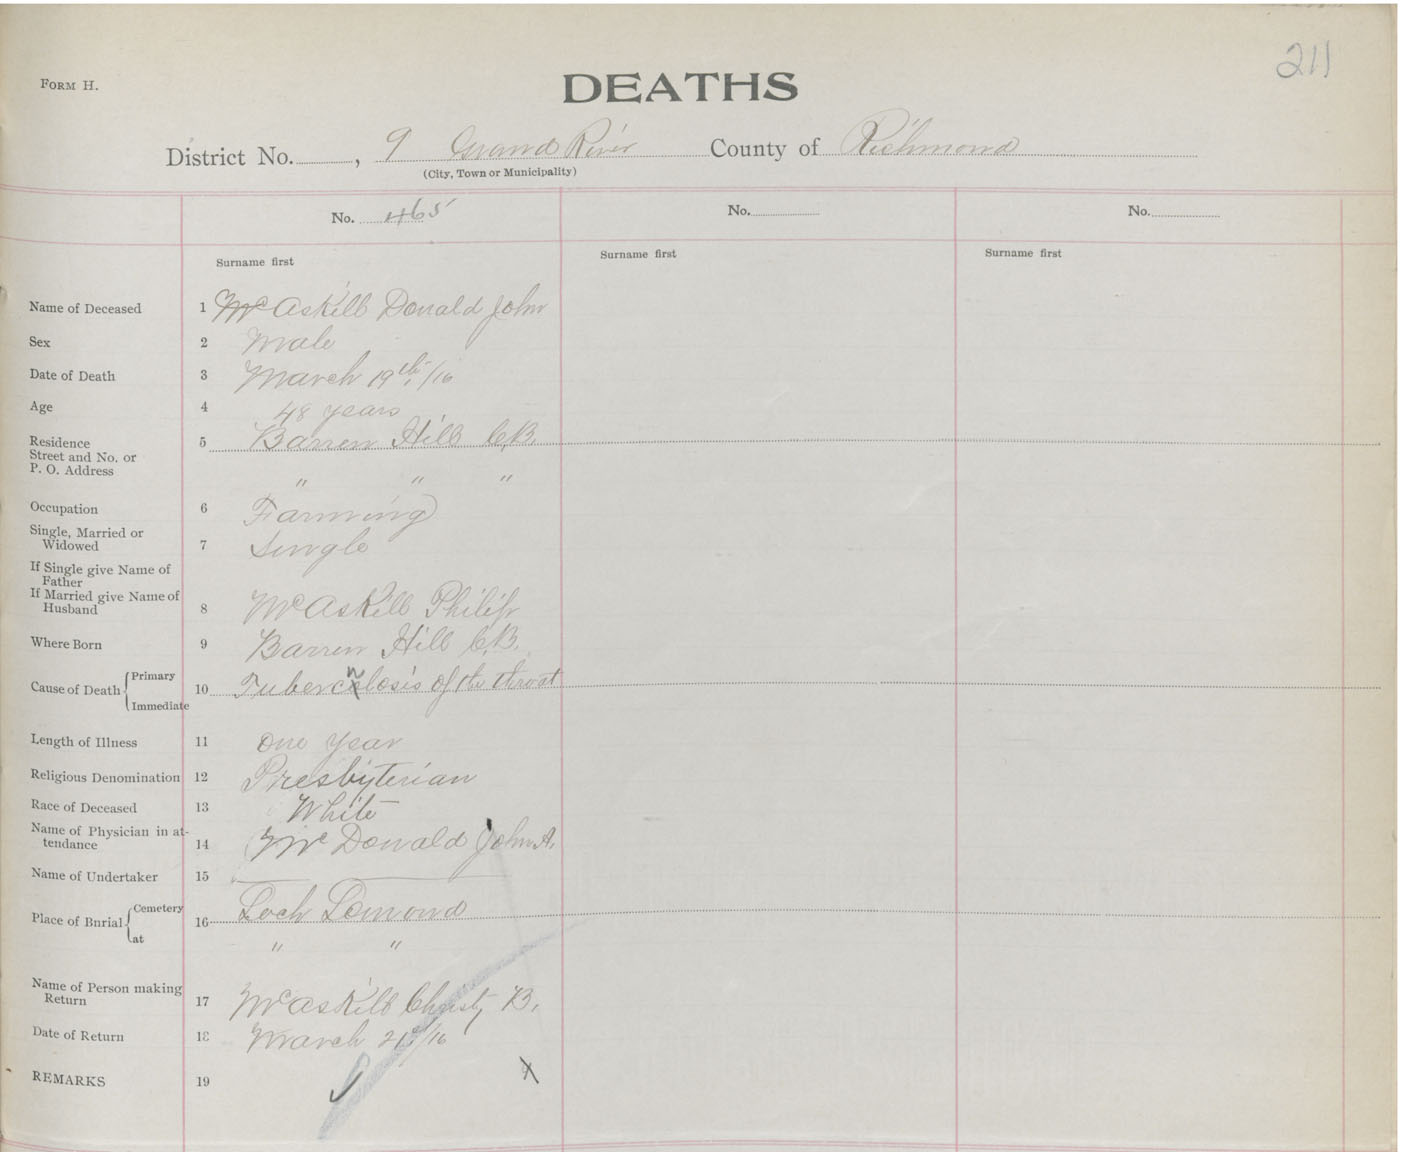 211
FORM H.
DEATHS
District No. , 9 Grand River County of Richmond
(City, Town or Municipality)
No. 465 No. No.
Surname first Surname first Surname first
Name of Deceased 1 McAskill Donald John
Sex 2 Male
Date of Death 3 March 19th/16
Age 4 48 years
Residence 5 Barren Hill C.B.
Street and No. or
P. O. Address " " "
Occupation 6 Farming
Single, Married or
Widowed 7 Single
If Single give Name of
Father
If Married give Name of
Husband 8 McAskill Philip
Where Born 9 Barren Hill C.B.
Cause of Death { Primary
10 Tuberculosis of the throat
Immediate
Length of Illness 11 One year
Religious Denomination 12 Presbyterian
Race of Deceased 13 White
Name of Physician in at-
tendance 14 McDonald John A.
Name of Undertaker 15
Place of Burial { Cemetery
16 Loch Lomond
at " "
Name of Person making
Return 17 McAskill Christy B.
Date of Return 18 March 21st/16
REMARKS 19 X